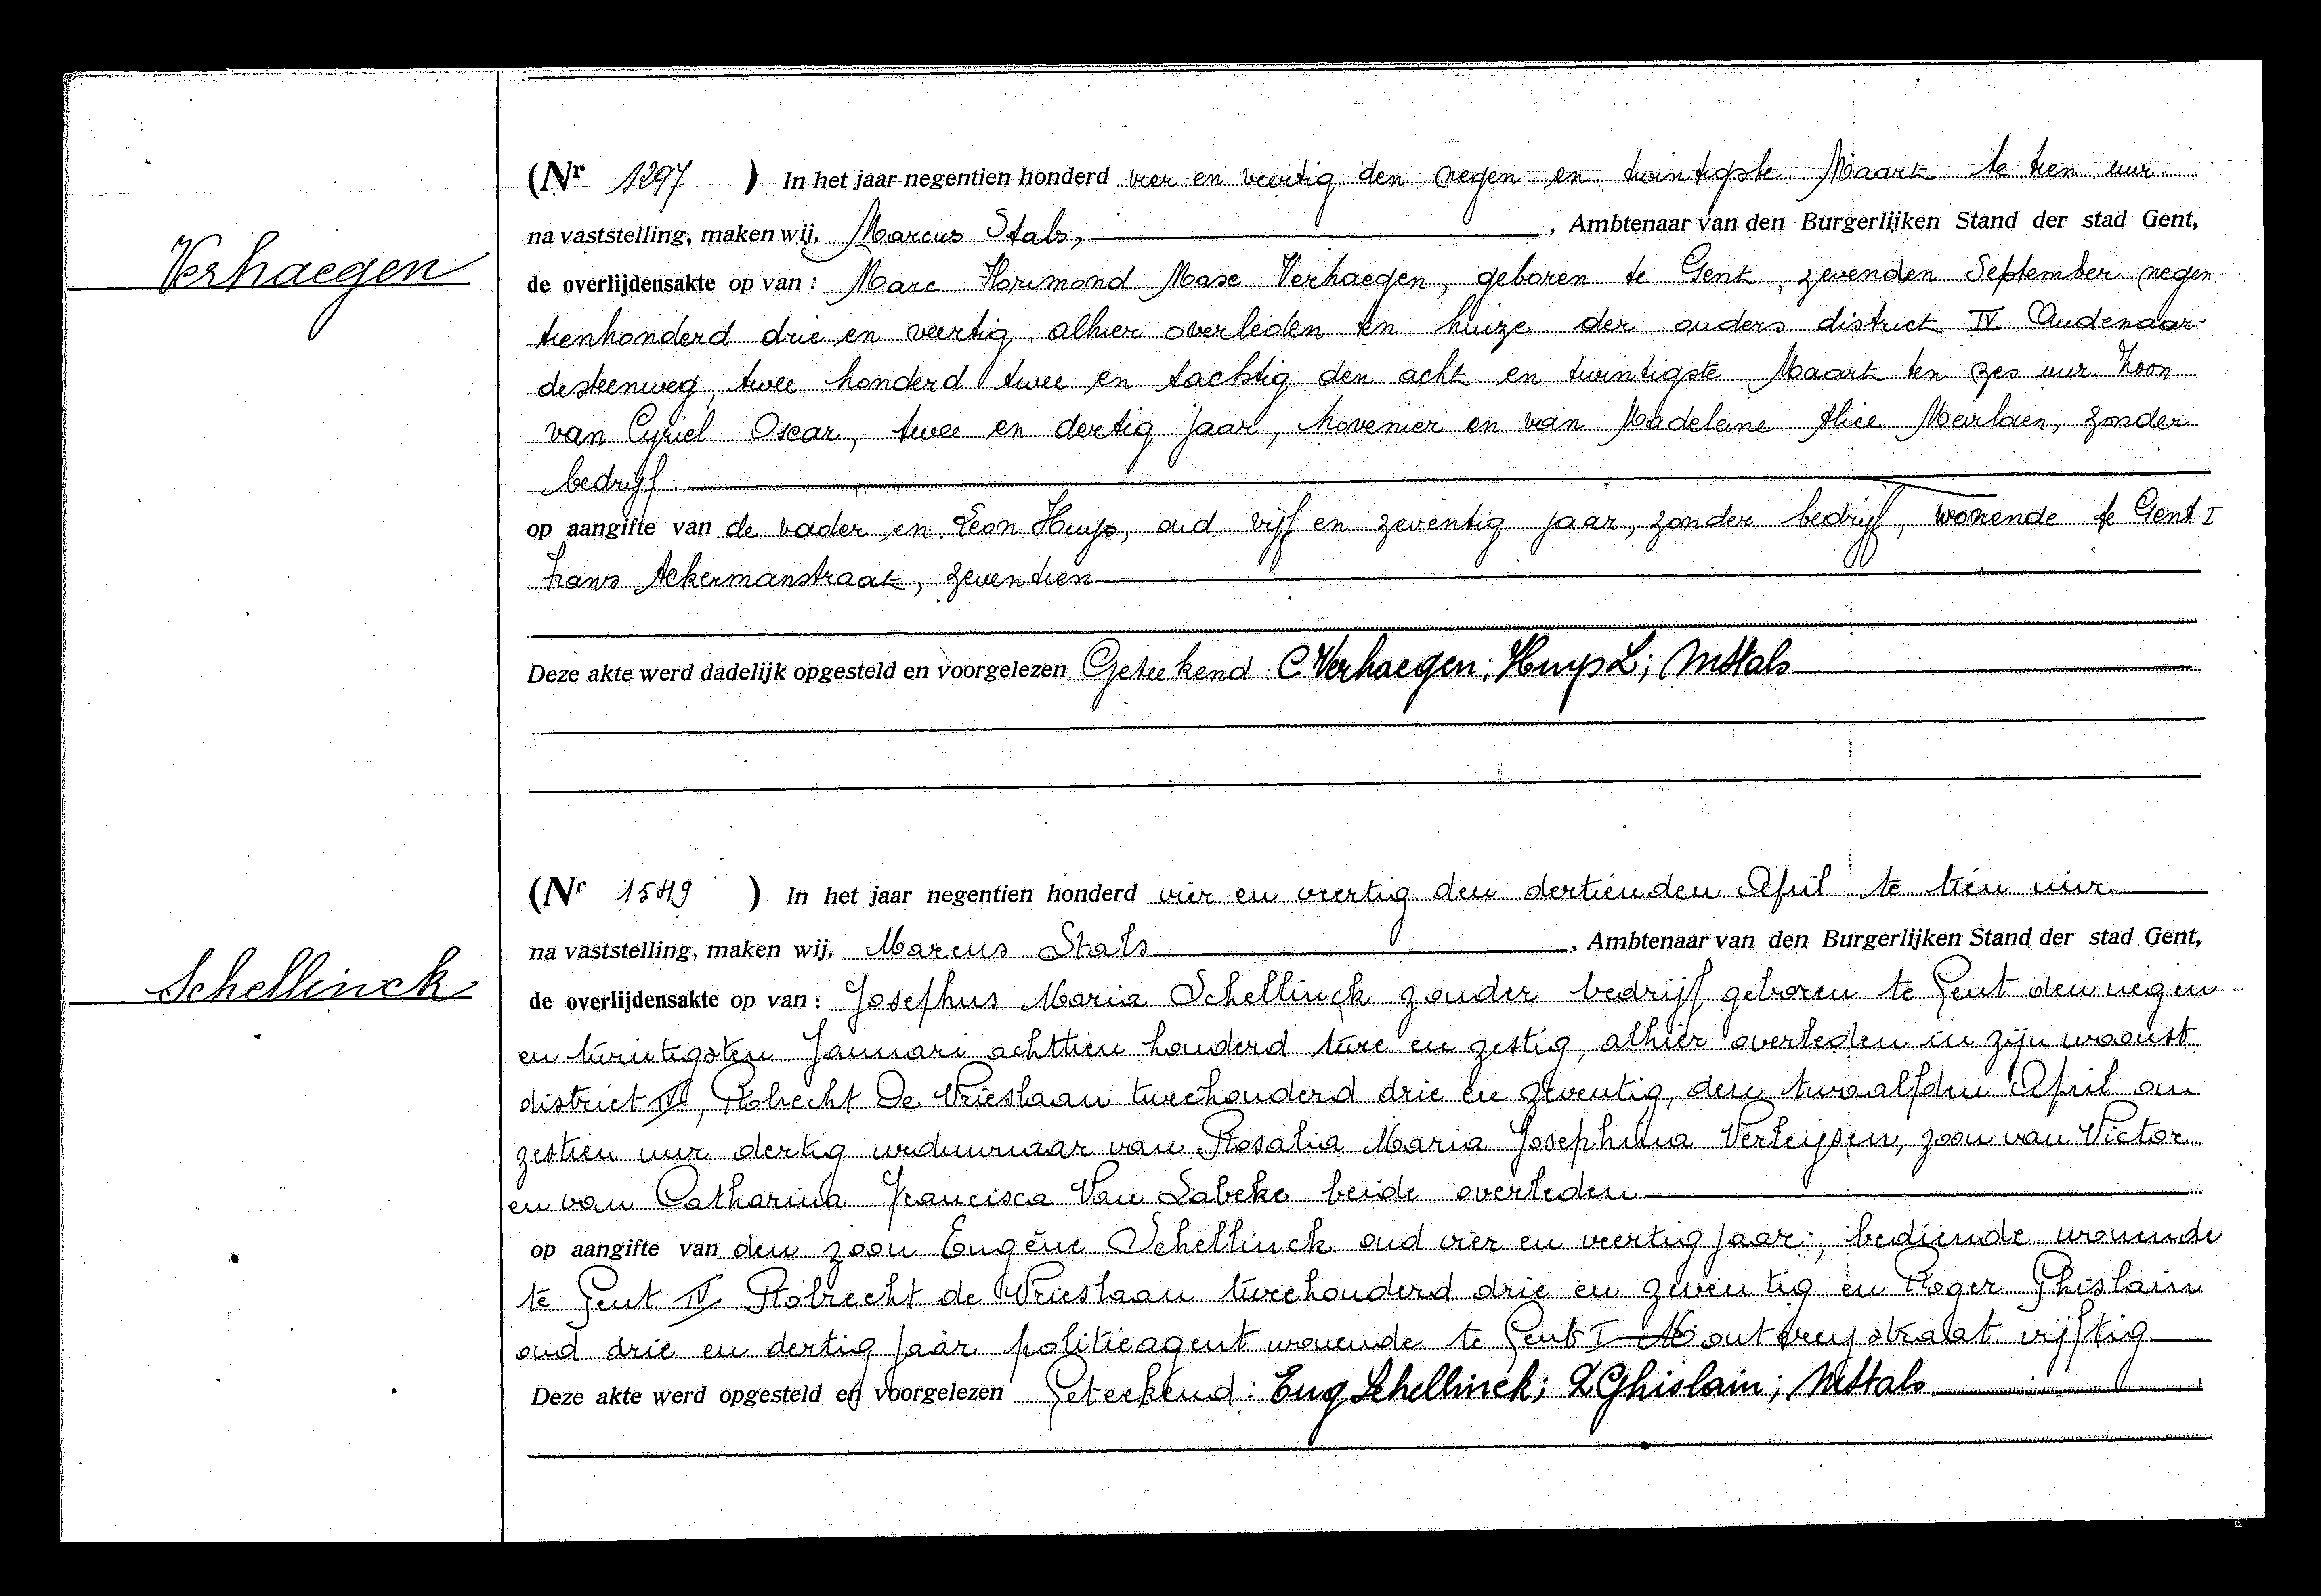 (Nr 1297 ) In het jaar negentien honderd vier en veertig den negen en twintigste Maart te tien uur
na vaststelling, maken wij, Marcus Stals, , Ambtenaar van den Burgerlijken Stand der stad Gent,
Verhaegen
de overlijdensakte op van : Marc Florimond Marie Verhaegen, geboren te Gent, zevenden September negen
tienhonderd drie en veertig, alhier overleden ten huize der ouders district IV Oudenaar-
desteenweg, twee honderd twee en tachtig den acht en twintigste Maart ten zes uur. Zoon
van Cyriel Oscar, twee en dertig jaar, hovenier en van Madeleine Alice Meirlaen, zonder
bedrijf.
op aangifte van de vader en Leon Huys, oud vijf en zeventig jaar, zonder bedrijf, wonende te Gent I
Frans Ackermanstraat, zeventien
Deze akte werd dadelijk opgesteld en voorgelezen Geteekend : C. Verhaegen; Huys L; MStals
(Nr 1549 ) In het jaar negentien honderd vier en veertig den dertienden April te tien uur
na vaststelling, maken wij, Marcus Stals , Ambtenaar van den Burgerlijken Stand der stad Gent,
Schellinck
de overlijdensakte op van : Josephus Maria Schellinck zonder bedrijf geboren te Gent den negen
en twintigsten Januari achttien honderd twee en zestig, alhier overleden in zijn woonst
district IV, Robrecht De Vrieslaan tweehonderd drie en zeventig, den twaalfden April om
zestien uur dertig weduwnaar van Rosalia Maria Josephina Verleysen, zoon van Victor
en van Catharina Francisca Van Labeke beide overleden
op aangifte van den zoon Eugène Schellinck oud vier en veertig jaar, bediende wonende
te Gent IV Robrecht de Vrieslaan tweehonderd drie en zeventig en Roger Ghislain
oud drie en dertig jaar politieagent wonende te Gent I vijftig
Deze akte werd opgesteld en voorgelezen Geteekend : Eug Schellinck; R Ghislain; MStals